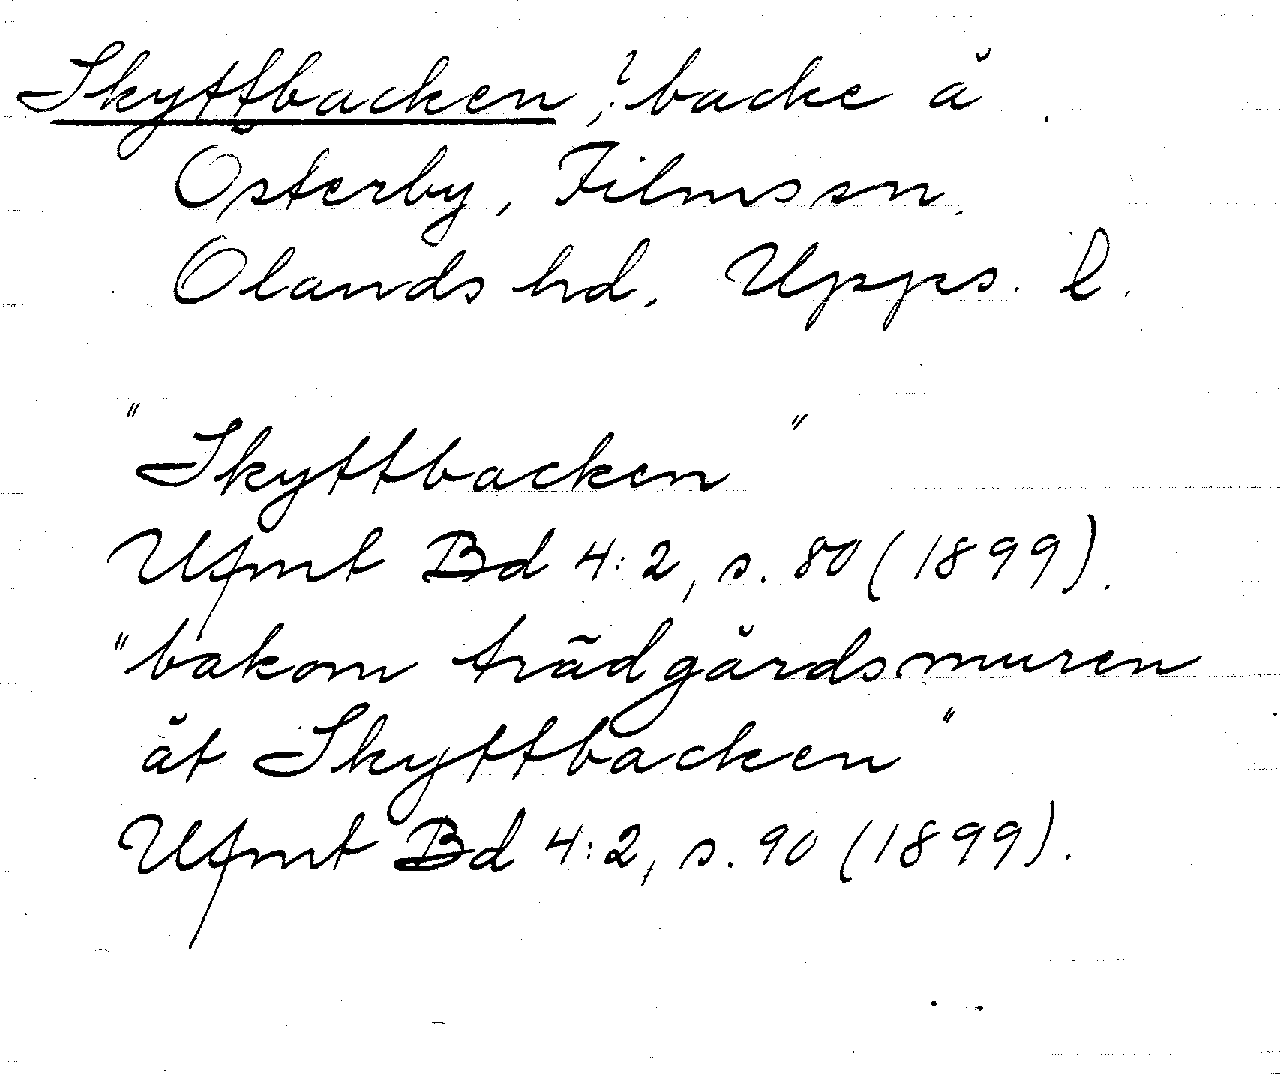 Skyttbacken, ? backe å
Österby, Films sn.
Olands hd. Upps. l.
"Skyttbacken"
Ufmt Bd 4:2, s. 80 (1899).
"bakom trädgårdsmuren
åt Skyttbacken"
Ufmt Bd 4:2, s. 90 (1899).